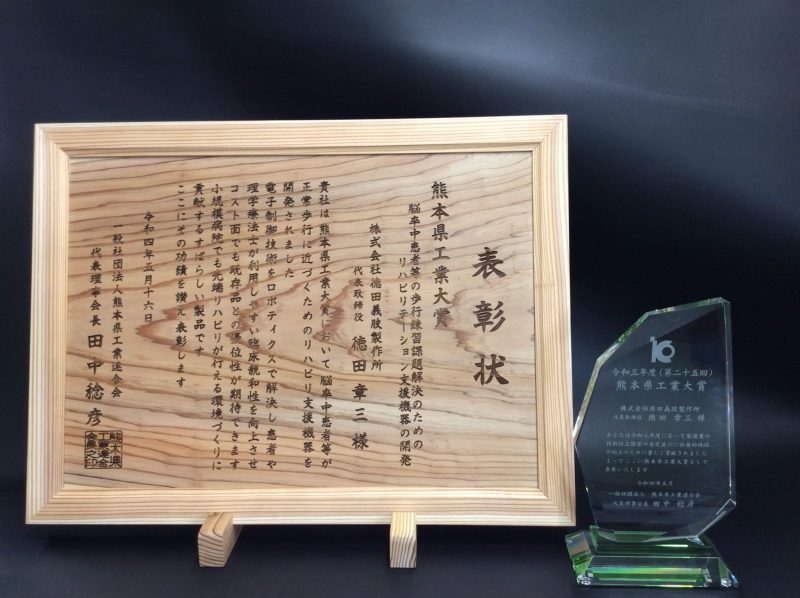 表彰状
熊本県工業大賞
脳卒中患者等の歩行練習課題解決のための
リハビリテーション支援機器の開発
株式会社徳田義肢製作所
代表取締役 徳田章三様
貴社は熊本県工業大賞において脳卒中患者等が
正常歩行に近づくためのリハビリ支援機器を
開発されました
電子制御技術をロボティクスで解決し患者や
理学療法士が利用しやすい臨床親和性を向上させ
コスト面でも既存品との優位性が期待できます
小規模病院でも先端リハビリが行える環境づくりに
貢献するすばらしい製品です
ここにその功績を讃え表彰します
令和四年五月十六日
一般社団法人熊本県工業連合会
代表理事会長 田中稔彦
熊本県
工業連合
会長之印
令和三年度(第二十五回)
熊本県工業大賞
株式会社徳田義肢製作所
代表取締役 徳田 章三 様
あなたは令和三年度において製造業の
技術向上経営の安定並びに社会的地位
の向上のために著しく貢献されました
よってここに熊本県工業大賞として
表彰いたします
令和四年五月
一般社団法人 熊本県工業連合会
代表理事会長 田中 稔彦